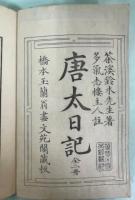 茶溪鈴木先生著
多氣志樓主人註
唐太日記 全二冊
橋本玉蘭翁畫 文苑閣藏板